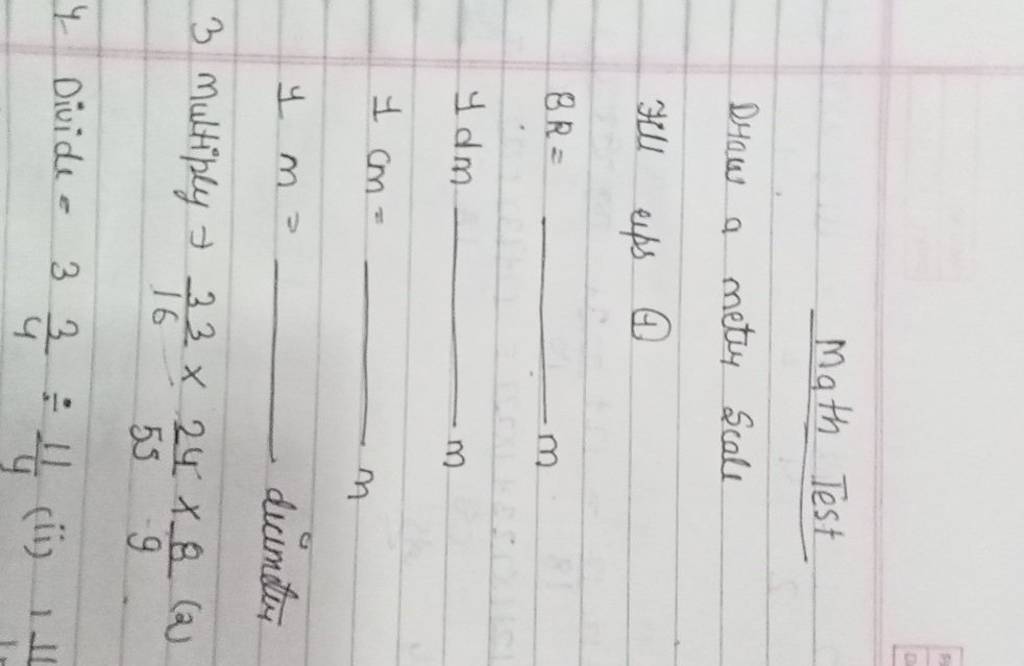 Math Test
Draw a meter Scale
Fill ups 1
8R = ____ m
1 dm ____ m
1 cm = ____ m
1 m = ____ decimeter
3 Multiply → 33/16 × 24/55 × 8/9 (a)
4- Divide = 3 3/4 ÷ 11/4 (ii) 1